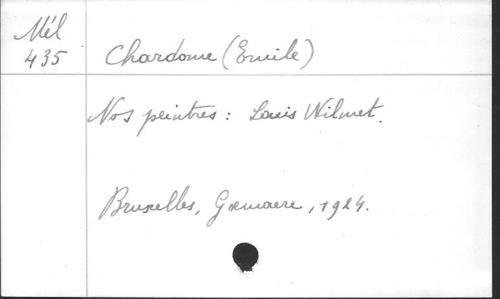 Mél
435
Chardome (Emile)
Nos peintres : Louis Wilmet.
Bruxelles, Goemaere, 1924.